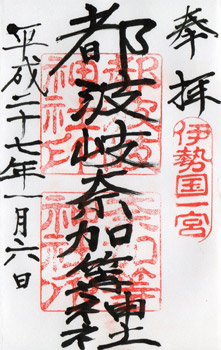 奉拝
伊勢国一宮
都波岐奈加等神社
平成二十七年一月六日